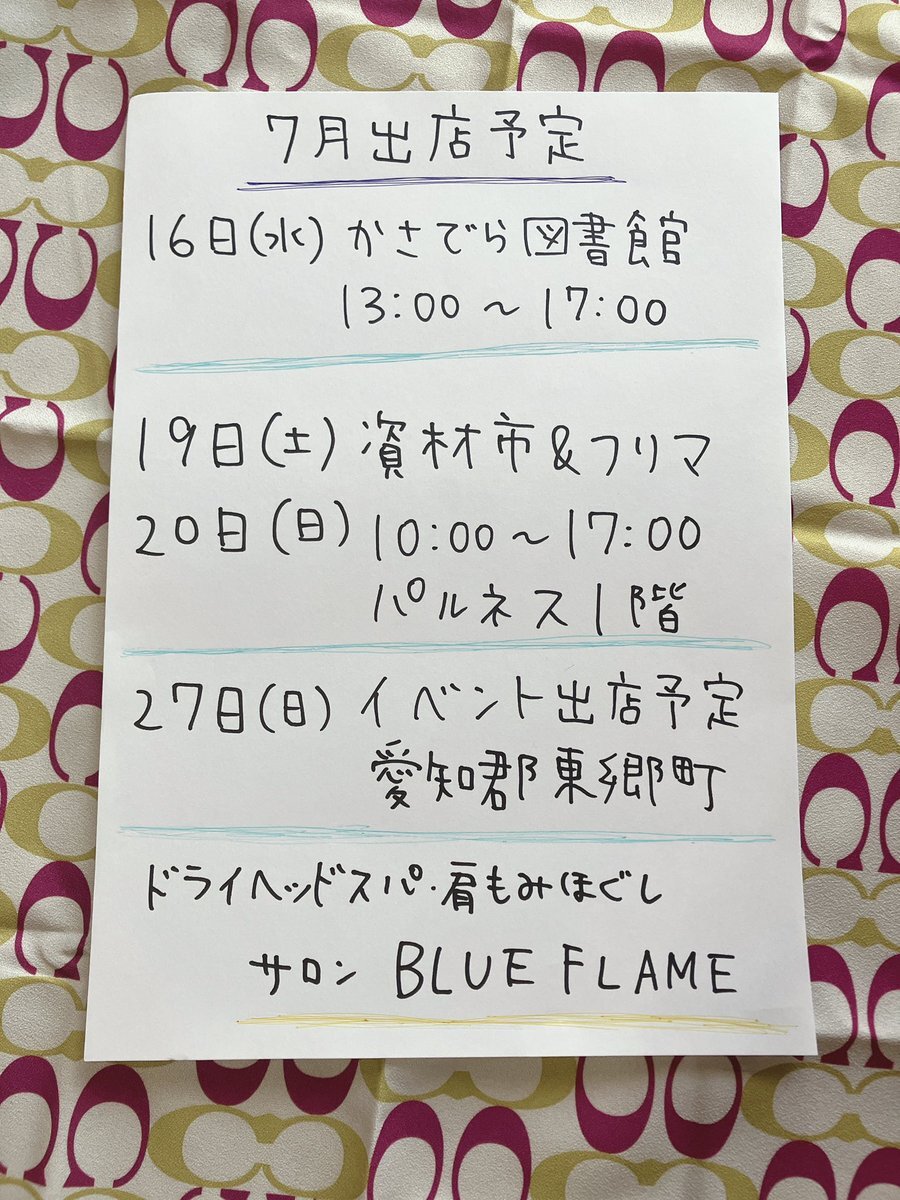 7月出店予定
16日(水) かさでら図書館
13:00～17:00
19日(土) 資材市&フリマ
20日(日) 10:00～17:00
パルネス1階
27日(日) イベント出店予定
愛知郡東郷町
ドライヘッドスパ・肩もみほぐし
サロン BLUE FLAME